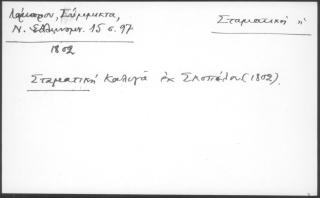 Λάμπρου, Σύμμικτα, Σταματική ἡ
Ν. Ἑλληνομν. 15 σ. 97
1802
Σταματική Καλυγᾶ ἐκ Σκοπέλου (1802).